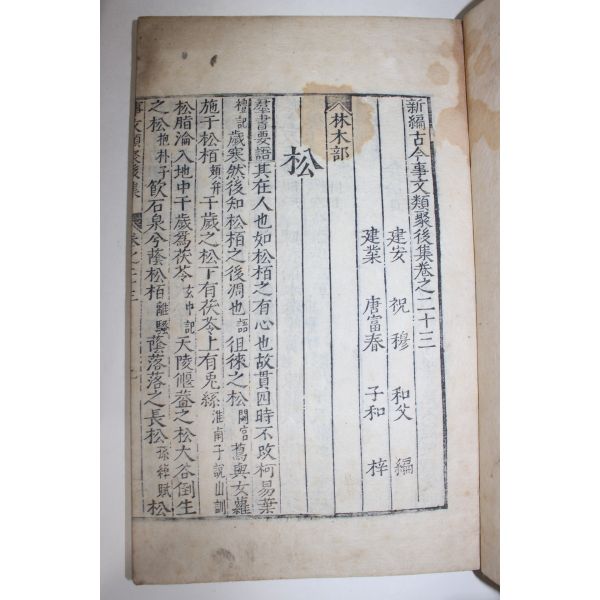 新編古今事文類聚後集卷之二十三
建安 祝穆 和父 編
建業 唐富春 子和 梓
林木部
松
羣書要語其在人也如松栢之有心也故貫四時不改柯易葉
禮記歲寒然後知松栢之後凋也語徂徠之松閟宫蔦與女蘿
施于松栢頍弁千歲之松下有茯苓上有兎絲淮南子說山訓
松脂淪入地中千歲爲茯苓玄中記天陵偃葢之松大谷倒生
之松抱朴子飮石泉兮蔭松栢離騷蔭落落之長松孫綽賦松
事文類聚後集 卷之二十三